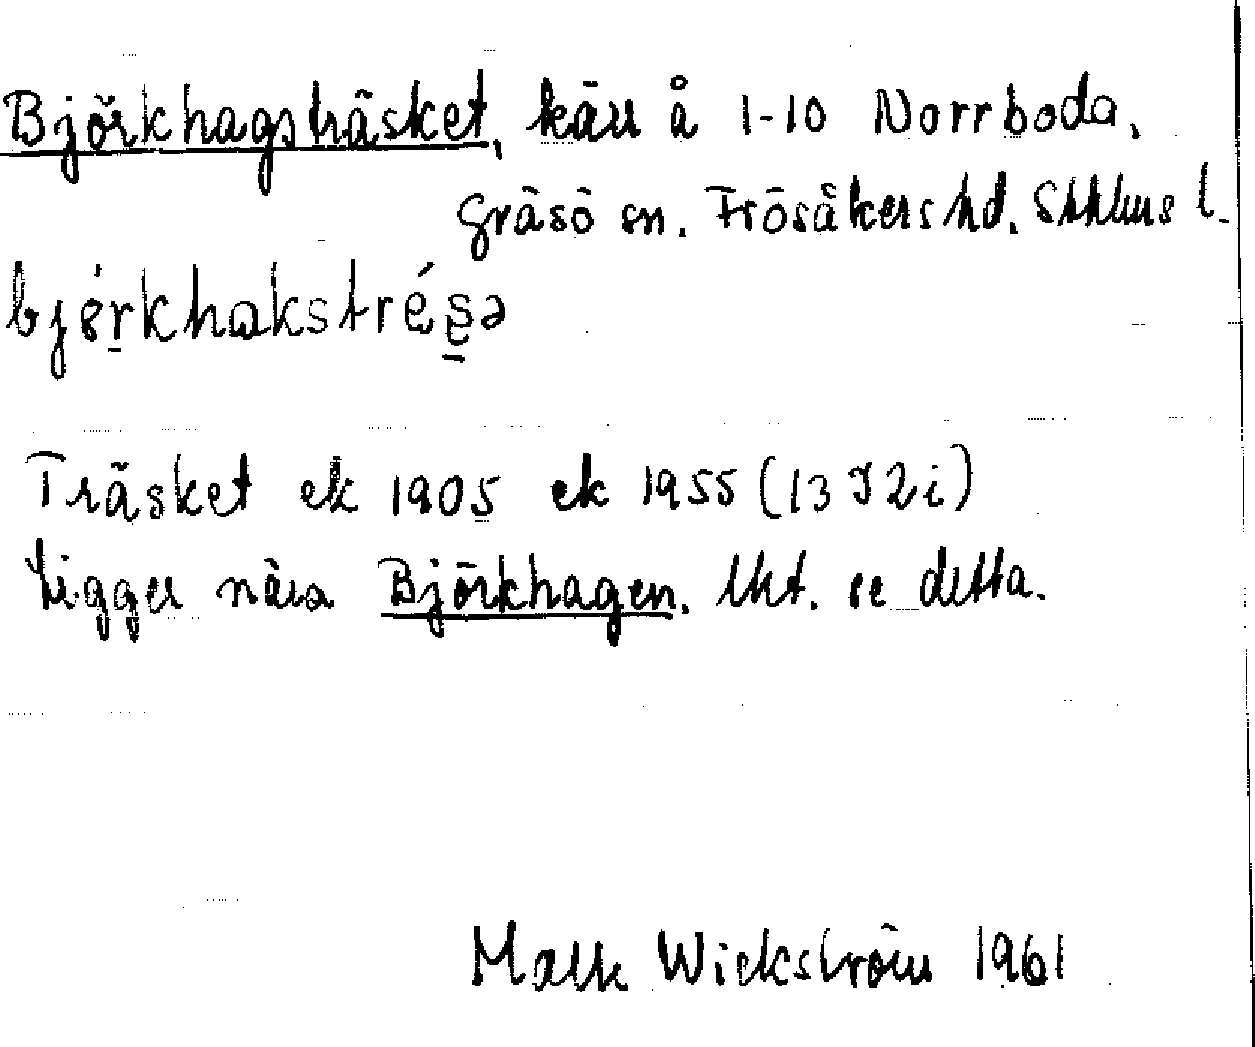 Björkhagsträsket, kärr å 1-10 Norrboda,
Gräsö sn. Frösåkers hd. Sthlms l.
Träsket ek 1905 ek 1955 (13 I 2 i)
Ligger nära Björkhagen. Utt. se detta.
Wickström 1961